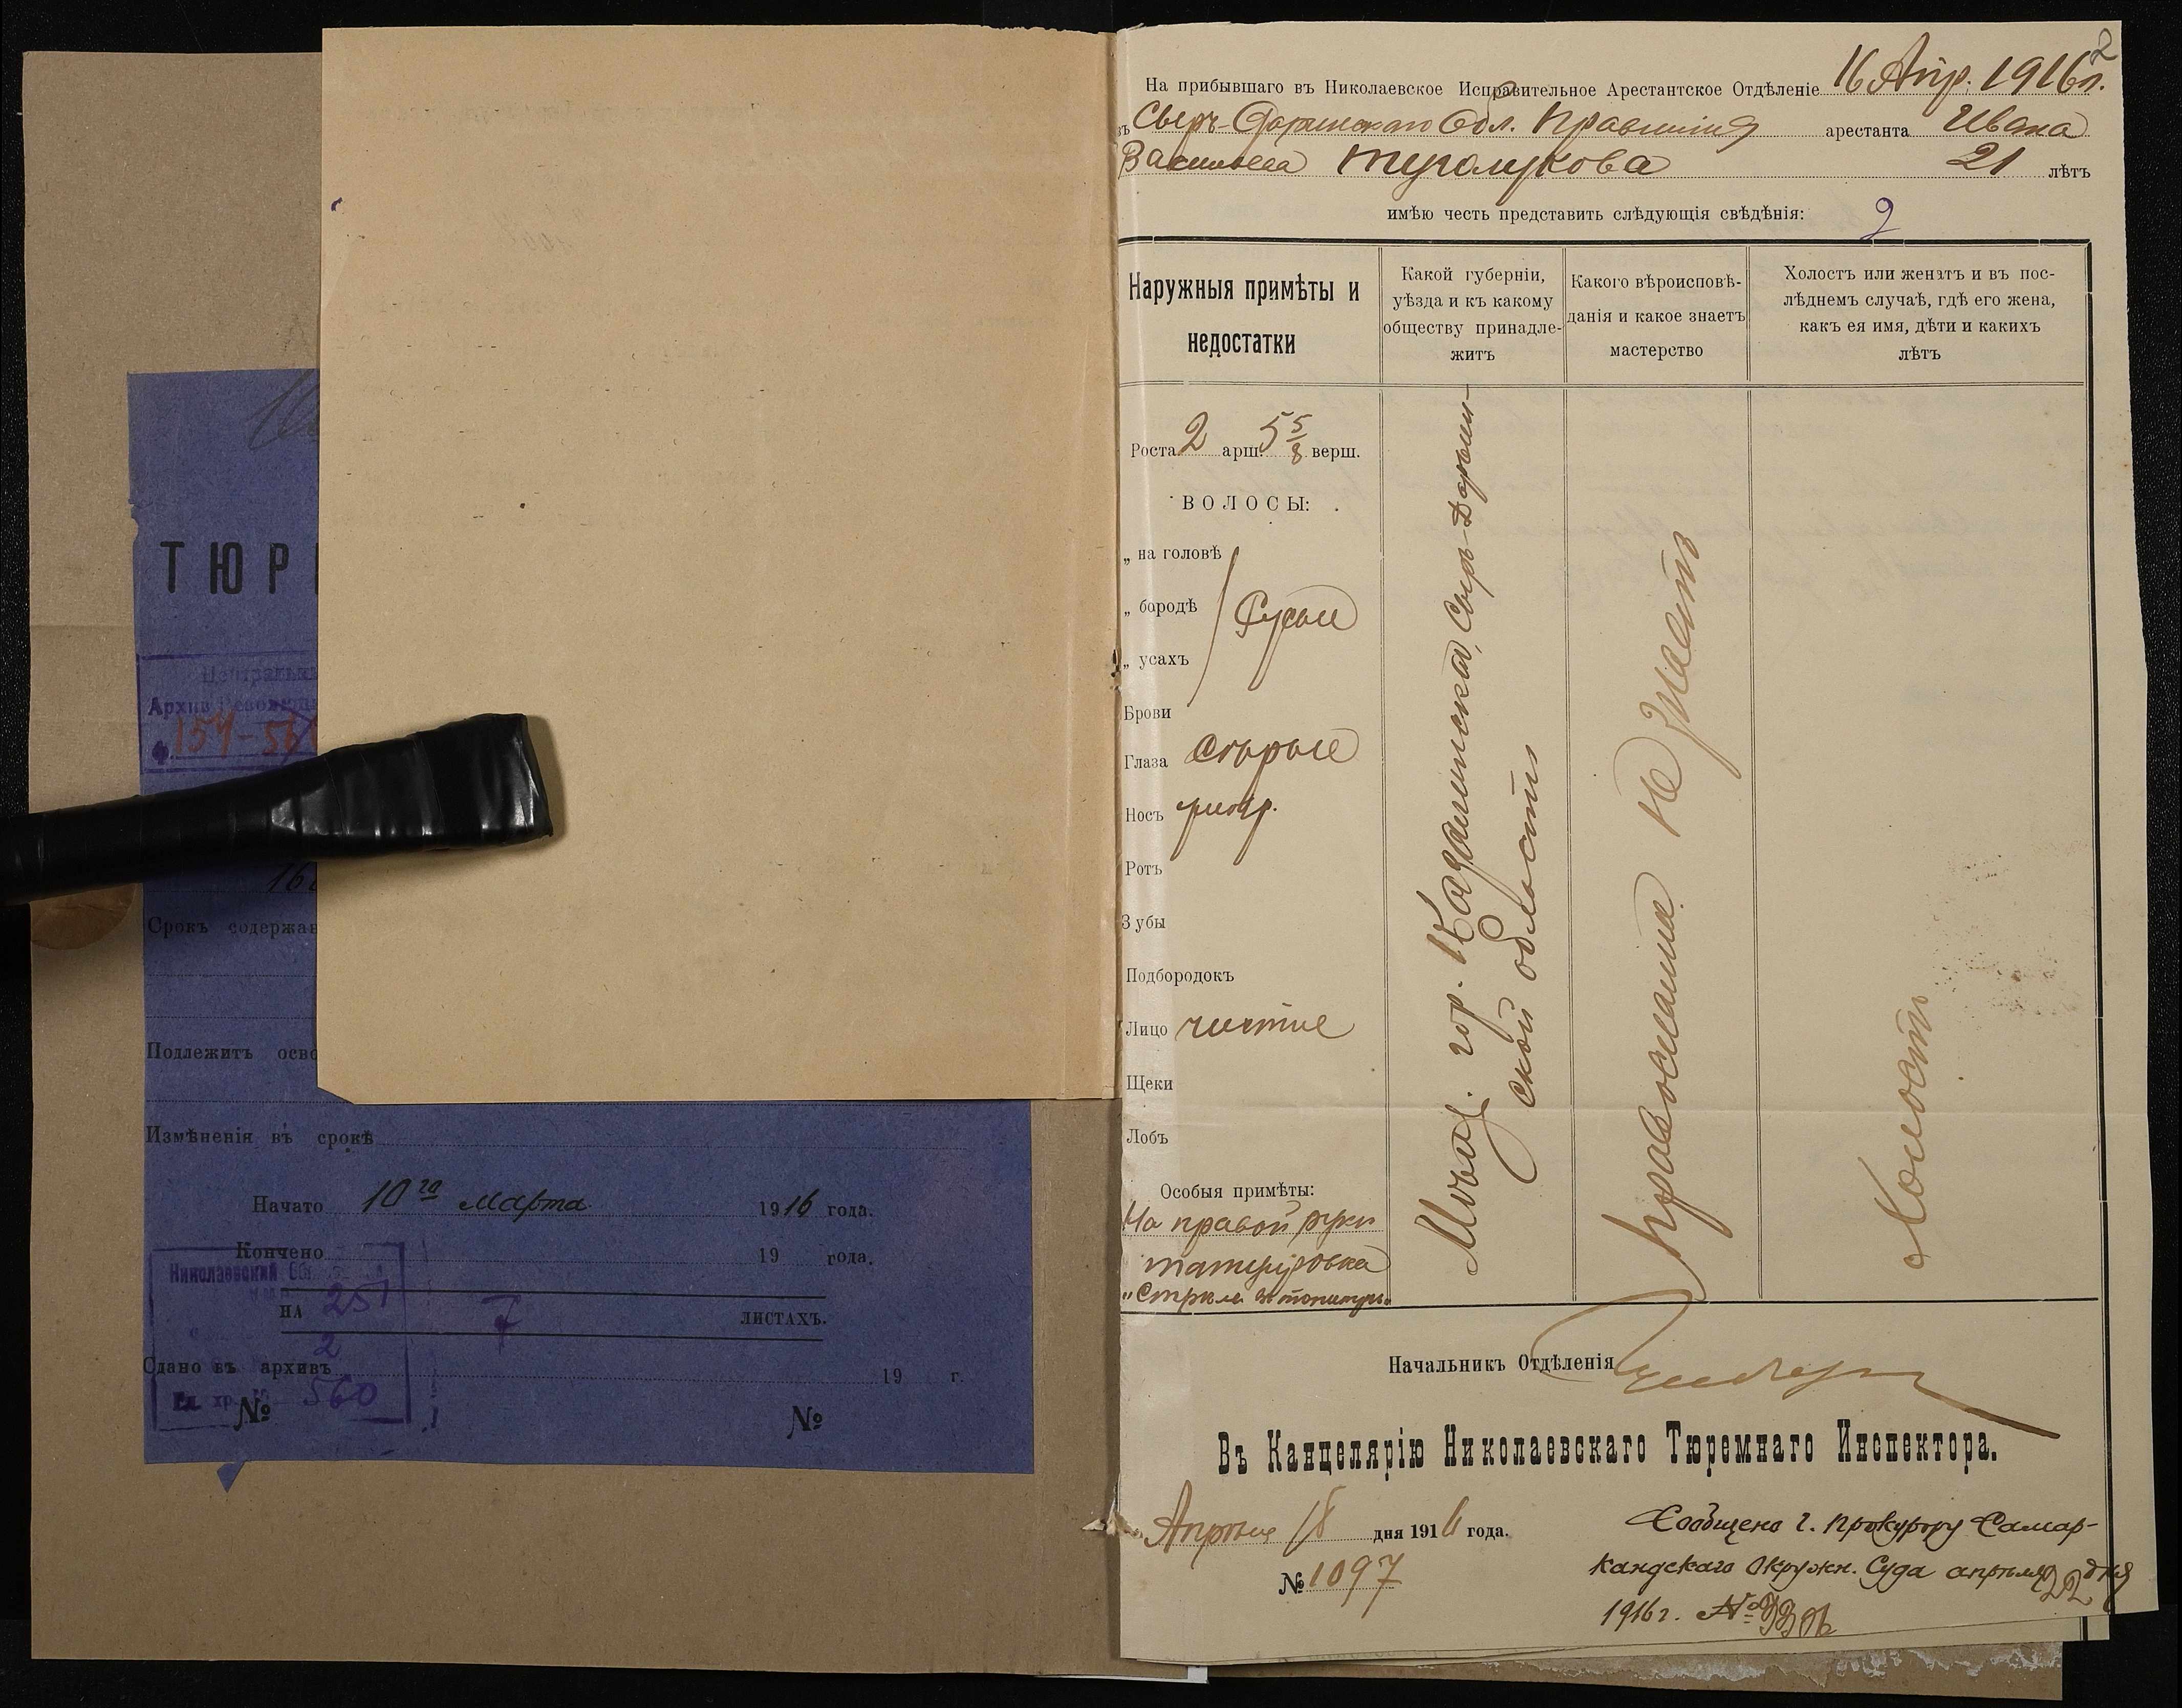 ТЮР
Центральн
Архив Революц
Ф. 157-
16
Срокъ содержан
Подлежитъ осво
Измѣненія въ срокѣ
Начато 10го марта 1916 года.
Кончено 19 года.
Николаевский
251
НА 7 ЛИСТАХЪ.
2
Сдано въ архивъ 19 г.
Ед. хр. № 560
№ №
2
На прибывшаго въ Николаевское Исправительное Арестантское Отдѣленіе 16 Апр. 1916 г.
въ Сыръ-Дарьинскаго Обл. Правленія арестанта Ивана
Васильева Туголукова 21 лѣтъ
имѣю честь представить слѣдующія свѣдѣнія: 2
Наружныя примѣты и
недостатки
Какой губерніи,
уѣзда и къ какому
обществу принадле-
житъ
Какого вѣроисповѣ-
данія и какое знаетъ
мастерство
Холостъ или женатъ и въ пос-
лѣднемъ случаѣ, гдѣ его жена,
какъ ея имя, дѣти и какихъ
лѣтъ
Роста 2 арш. 5 5/8 верш.
ВОЛОСЫ:
„ на головѣ
„ бародѣ Русые
„ усахъ
Брови
Глаза Сѣрые
Носъ умѣр.
Ротъ
Зубы
Подбородокъ
Лицо чистие
Щеки
Лобъ
Особыя примѣты:
На правой руки
татуировка
Мѣщ. гор. Казалинска, Сыръ-Дарьин-
ской области
Православна не знаетъ
Холостъ
Начальникъ Отдѣленія
Въ Канцелярію Николаевскаго Тюремнаго Инспектора.
Апрѣля 18 дня 1916 года.
№ 1097
Сообщено г. Прокурору Самар-
кандскаго Окружн. Суда апрѣля 22 дня
1916 г. №